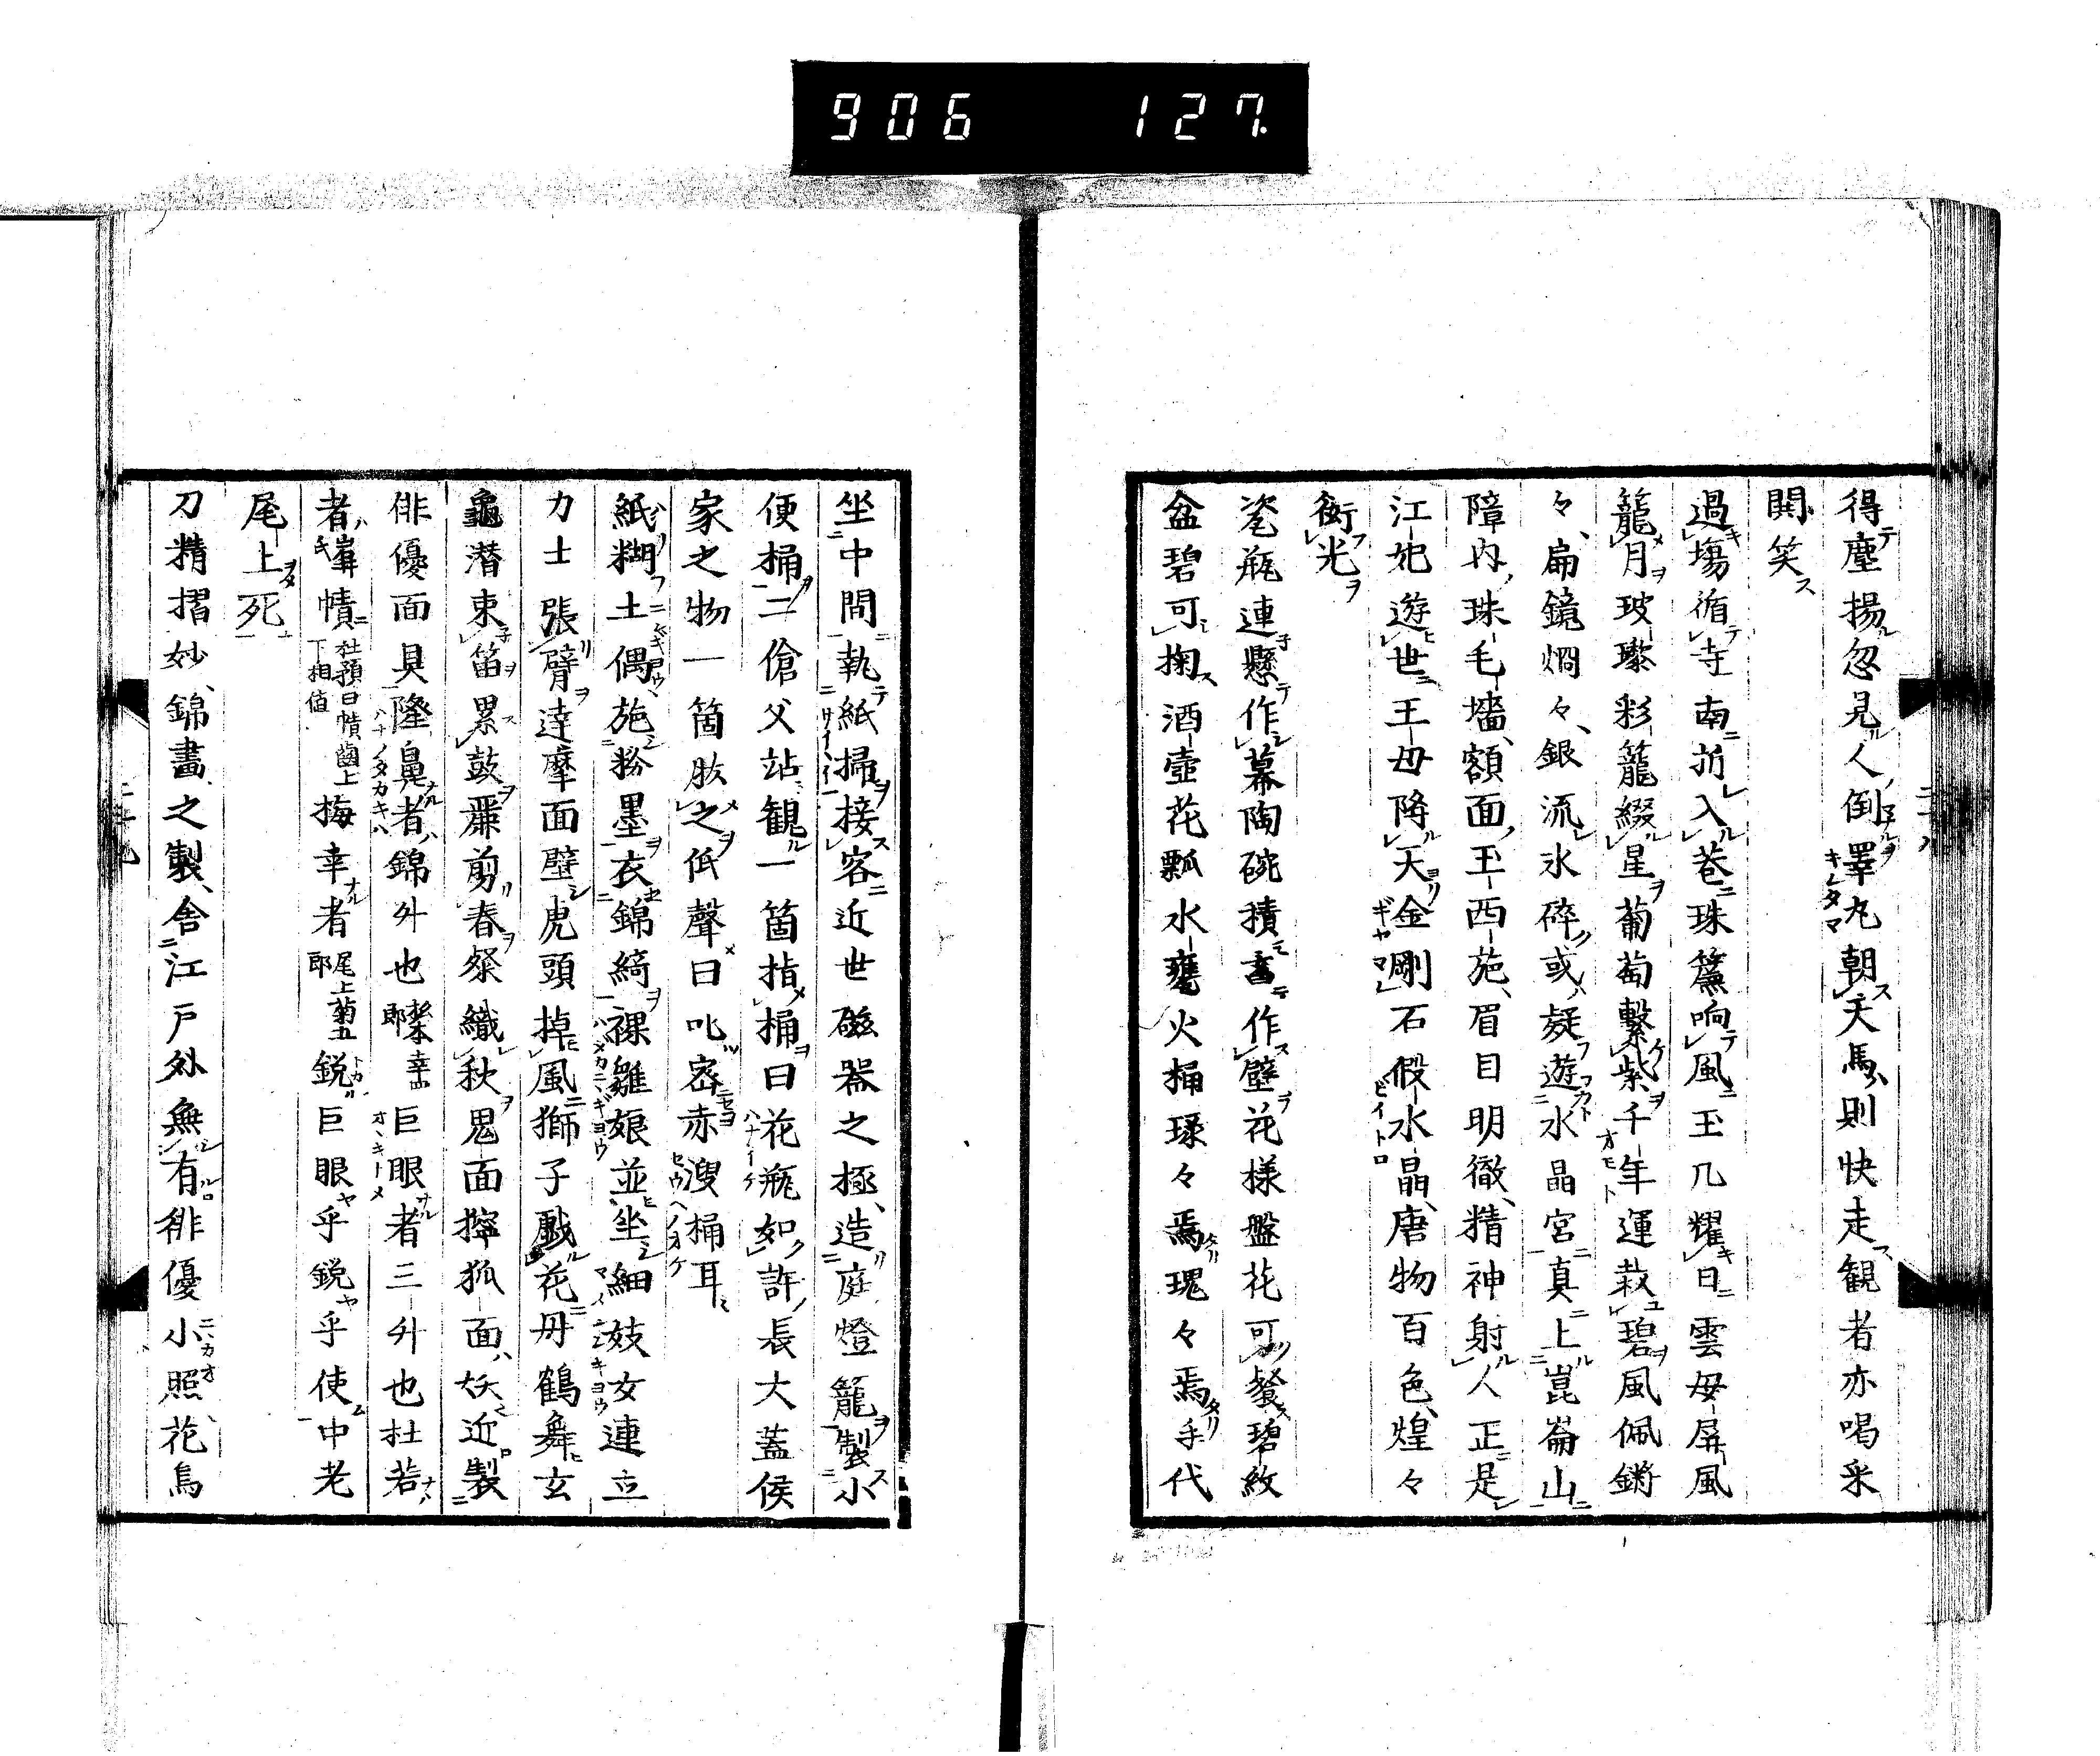 906 127
得塵揚忽見人倒睾丸朝天馬則快走観者亦喝采
閧笑
過塲循寺南前入巷珠簾响風玉几耀日雲母屏風
籠月玻瓈彩籠綴星葡萄繫紫千年運栽碧風佩鏘
々扁鏡炯々銀流氷碎或疑遊水晶宮真上崑崙山
障内珠毛墻額面玉西施眉目明徹精神射人正是
江妃遊世王母降天金剛石假水晶唐物百色煌々
衒光
瓷瓶連懸作幕陶碗積畜作壁花様盤花可餐碧紋
盆碧可掬酒壺花瓢水甕火桶琇々焉瑰々焉手代
坐中間執紙掃接客近世磁器之極造庭燈籠製小
便桶二傖父站観一箇指桶曰花瓶如許長大蓋侯
家之物一箇肱之低聲曰叱密赤溲桶耳
紙糊土偶施粉墨衣錦綺裸雛娘並坐細妓女連立
力士張臂達摩面壁虎頭掉風獅子戯花丹鶴舞玄
龜潜束笛累鼓麃剪春粲織秋鬼面獰狐面妖近製
俳優面具隆鼻者錦升也 幸四郎 巨眼者三升也杜若
者 峯 幘 杜預曰幘齒上下相值 梅幸者 尾上菊五郎 鋭巨眼乎鋭乎使中老
尾上死
刀精摺妙錦畫之製舎江戸外無有俳優小照花鳥